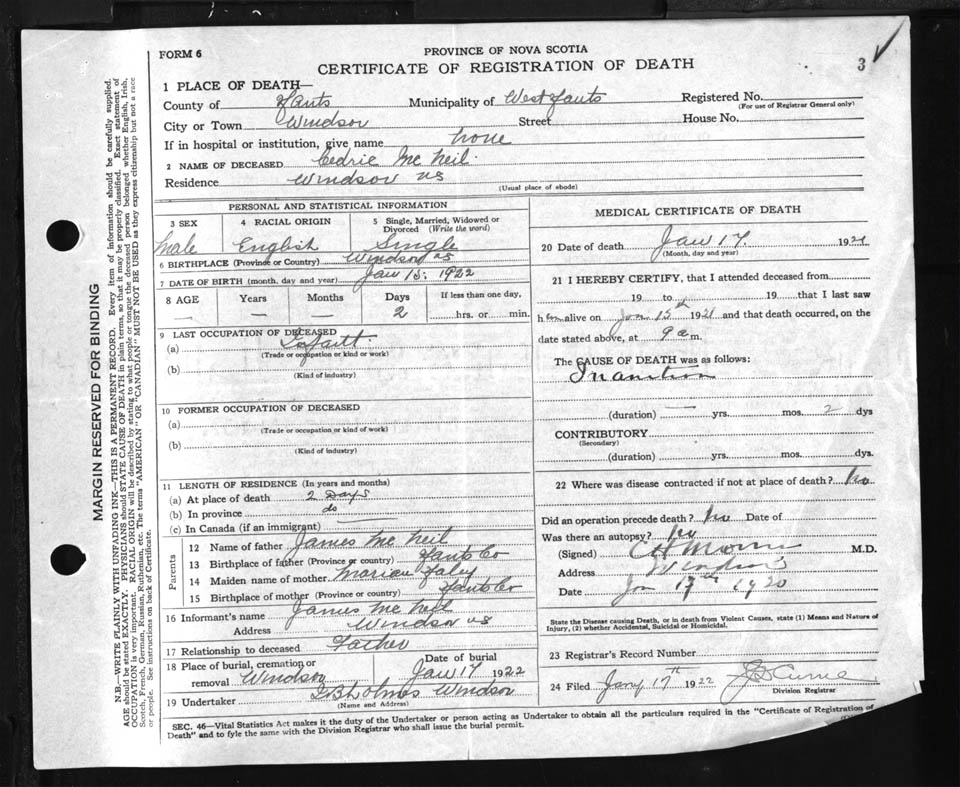 FORM 6
PROVINCE OF NOVA SCOTIA
CERTIFICATE OF REGISTRATION OF DEATH
3
1 PLACE OF DEATH—
County of Hants Municipality of West Hants Registered No.
(For use of Registrar General only)
City or Town Windsor Street House No.
If in hospital or institution, give name None
2 NAME OF DECEASED Cedric Mc Neil
Residence Windsor NS
(Usual place of abode)
PERSONAL AND STATISTICAL INFORMATION
3 SEX 4 RACIAL ORIGIN 5 Single, Married, Widowed or Divorced (Write the word)
Male English Single
6 BIRTHPLACE (Province or Country) Windsor NS
7 DATE OF BIRTH (month, day and year) Jan 15. 1922
8 AGE Years Months Days If less than one day,
— — — 2 hrs. or min.
9 LAST OCCUPATION OF DECEASED
(a)
(Trade or occupation or kind or work)
(b)
(Kind of industry)
10 FORMER OCCUPATION OF DECEASED
(a)
(Trade or occupation or kind of work)
(b)
(Kind of industry)
11 LENGTH OF RESIDENCE (In years and months)
(a) At place of death 2 Days
(b) In province do
(c) In Canada (if an immigrant) —
Parents
12 Name of father James Mc Neil
13 Birthplace of father (Province or country) Hants Co
14 Maiden name of mother Marion Faley
15 Birthplace of mother (Province or country) Hants Co
16 Informant's name James Mc Neil
Address Windsor NS
17 Relationship to deceased Father
18 Place of burial, cremation or removal Windsor Date of burial Jan 17 1922
19 Undertaker Windsor
(Name and Address)
MEDICAL CERTIFICATE OF DEATH
20 Date of death Jan 17. 1921
(Month, day and year)
21 I HEREBY CERTIFY, that I attended deceased from
19 to 19 that I last saw
him alive on Jan 15th 1921 and that death occurred, on the
date stated above, at 9 a m.
The CAUSE OF DEATH was as follows:
Inanition
(duration) — yrs. mos. 2 dys
CONTRIBUTORY
(Secondary)
(duration) yrs. mos. dys.
22 Where was disease contracted if not at place of death? No
Did an operation precede death? No Date of
Was there an autopsy? No
(Signed) M.D.
Address Windsor
Date Jan 17th 1920
State the Disease causing Death, or in death from Violent Causes, state (1) Means and Nature of
Injury, (2) whether Accidental, Suicidal or Homicidal.
23 Registrar's Record Number
24 Filed Jany 17th 1922
Division Registrar
SEC. 46—Vital Statistics Act makes it the duty of the Undertaker or person acting as Undertaker to obtain all the particulars required in the "Certificate of Registration of
Death" and to fyle the same with the Division Registrar who shall issue the burial permit.
MARGIN RESERVED FOR BINDING
N.B.—WRITE PLAINLY WITH UNFADING INK—THIS IS A PERMANENT RECORD. Every item of information should be carefully supplied.
AGE should be stated EXACTLY. PHYSICIANS should STATE CAUSE OF DEATH in plain terms, so that it may be properly classified. Exact statement of
OCCUPATION is very important. RACIAL ORIGIN will be described by stating to what people or tongue the deceased person belonged whether English, Irish,
Scotch, French, German, Russian, Ruthenian, etc. The terms "AMERICAN" or "CANADIAN" MUST NOT BE USED as they express citizenship but not a race
or people. See instructions on back of Certificate.